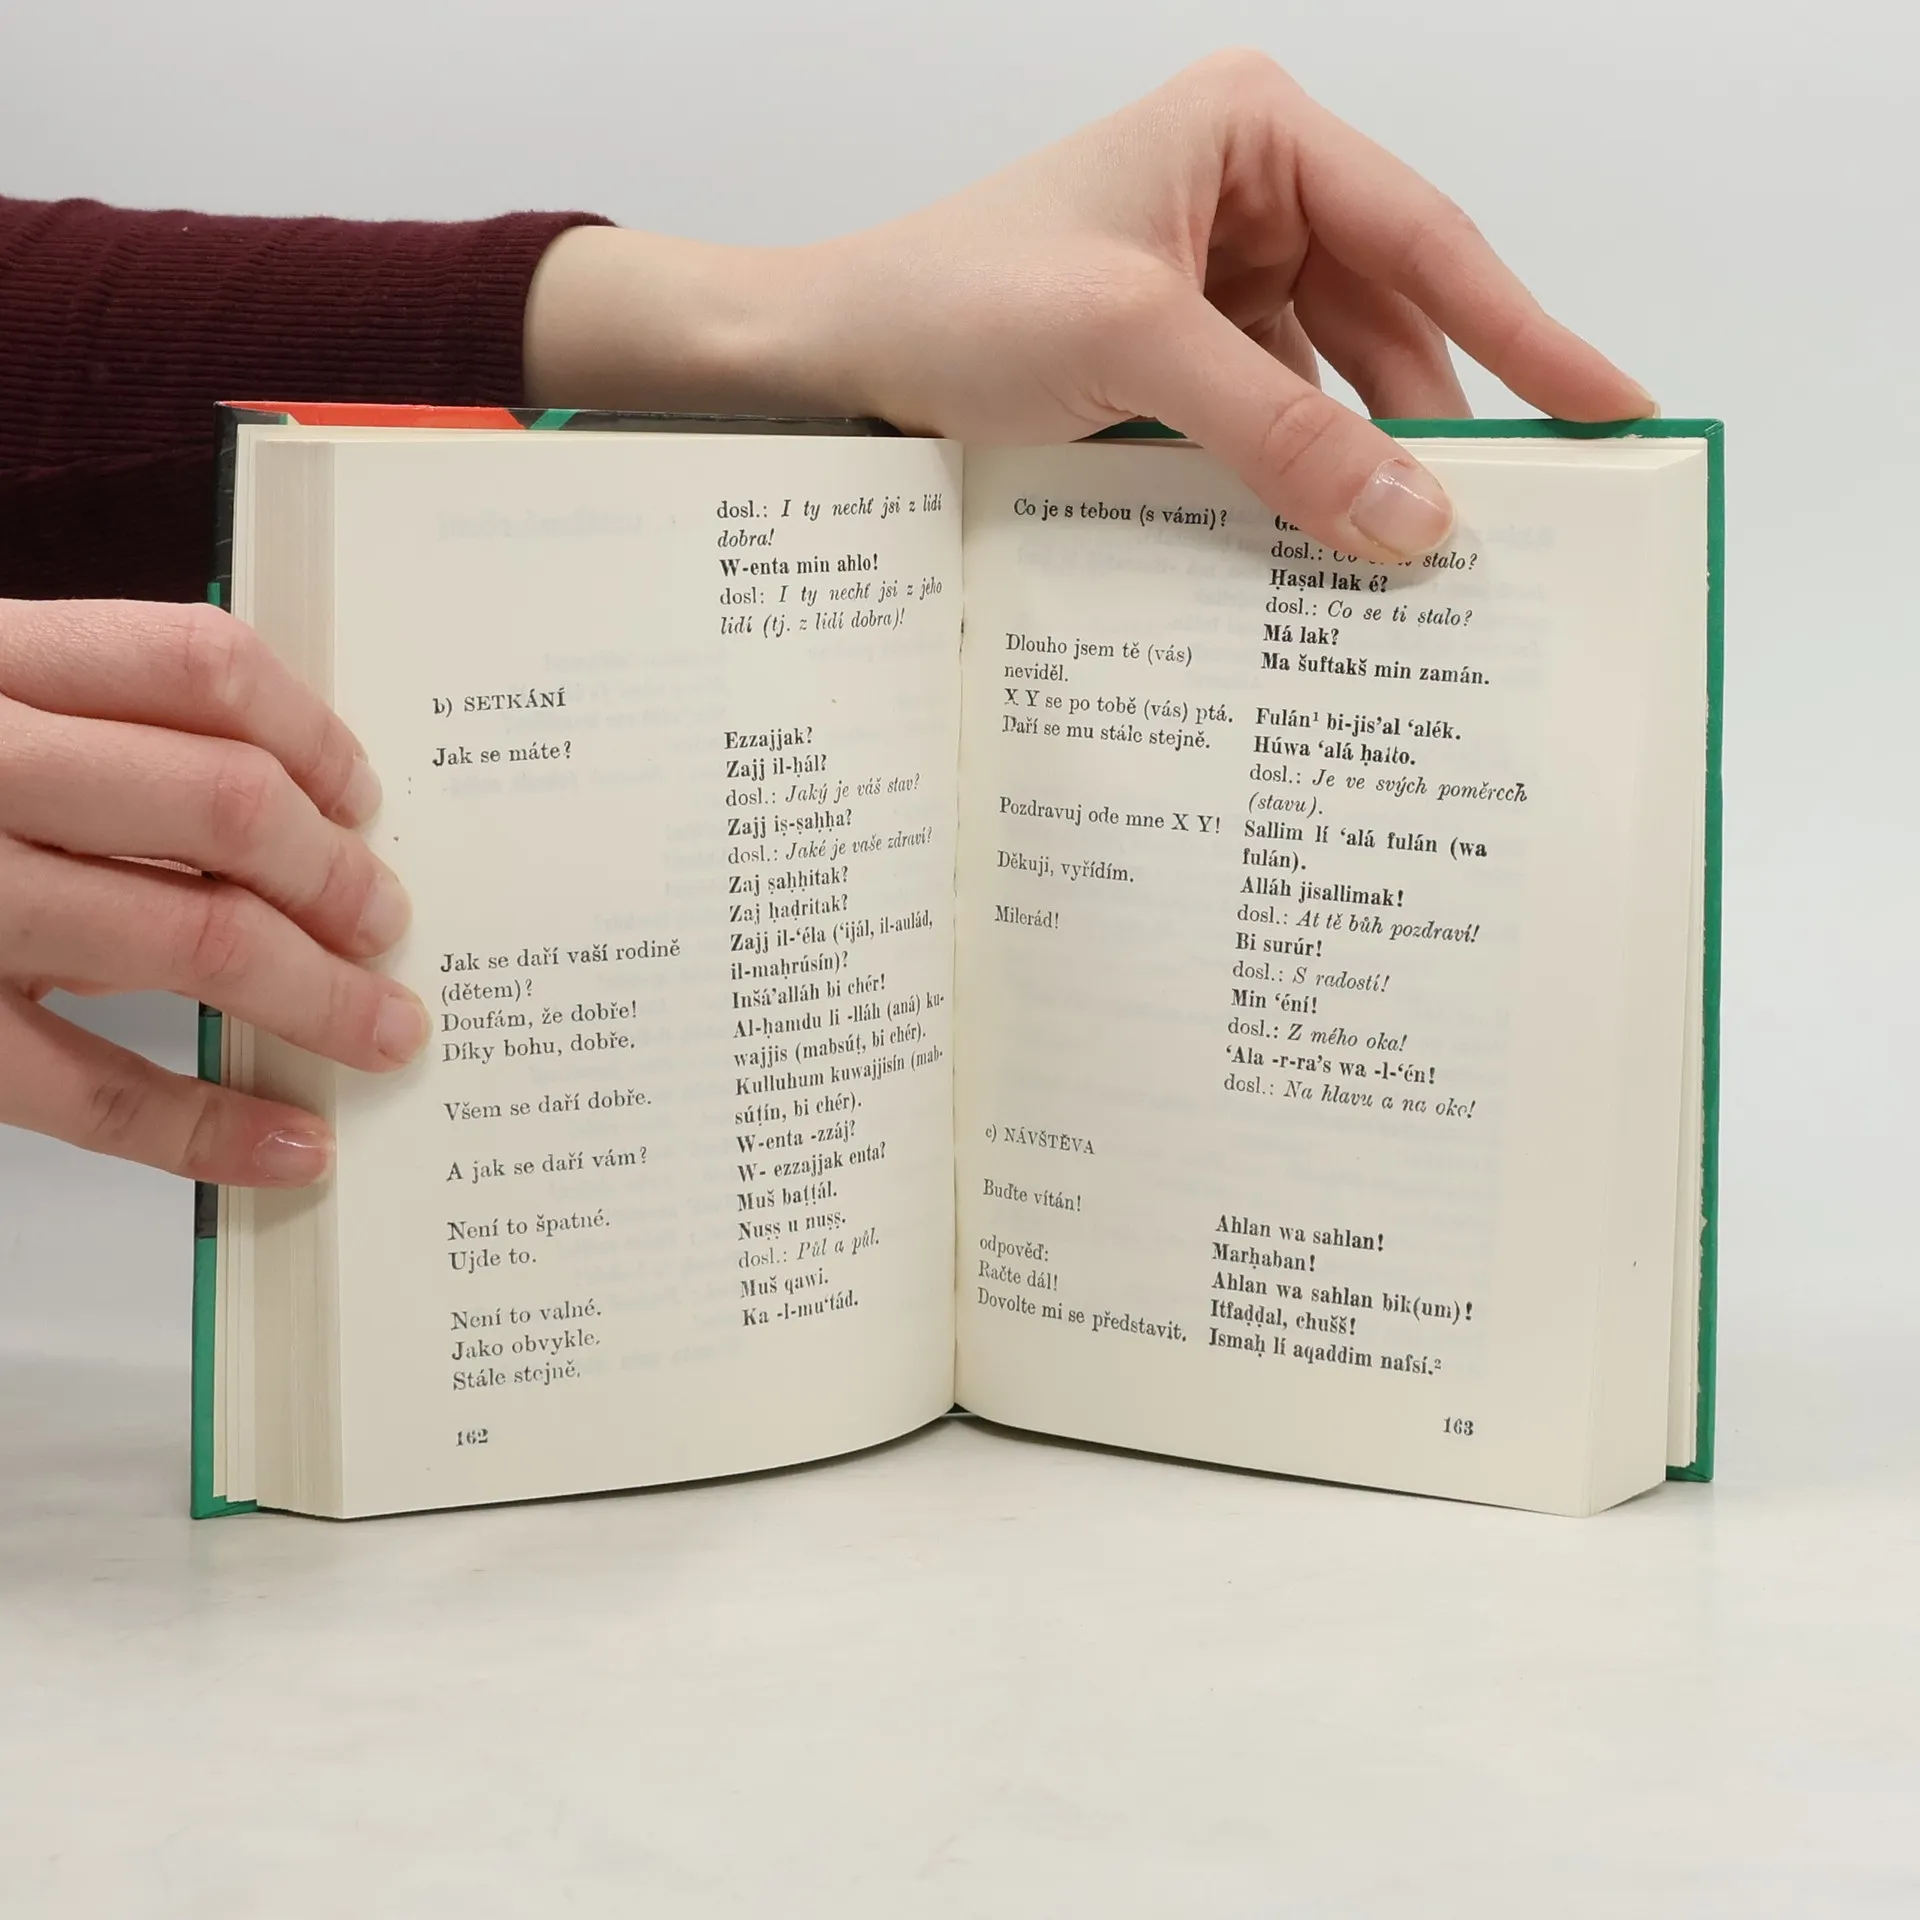 dosl.: I ty nechť jsi z lidí
dobra!
W-enta min ahlo!
dosl: I ty nechť jsi z jeho
lidí (tj. z lidí dobra)!
b) SETKÁNÍ
Jak se máte?
Ezzajjak?
Zajj il-ḥál?
dosl.: Jaký je váš stav?
Zajj iṣ-ṣaḥḥa?
dosl.: Jaké je vaše zdraví?
Zaj ṣaḥḥitak?
Zaj ḥaḍritak?
Jak se daří vaší rodině
(dětem)?
Zajj il-‘éla (‘ijál, il-aulád,
il-maḥrúsín)?
Doufám, že dobře!
Inšá’alláh bi chér!
Díky bohu, dobře.
Al-ḥamdu li -lláh (aná) ku-
wajjis (mabsúṭ, bi chér).
Všem se daří dobře.
Kulluhum kuwajjisín (mab-
súṭín, bi chér).
A jak se daří vám?
W-enta -zzáj?
W- ezzajjak enta?
Není to špatné.
Muš baṭṭál.
Ujde to.
Nuṣṣ u nuṣṣ.
dosl.: Půl a půl.
Není to valné.
Muš qawi.
Jako obvykle.
Ka -l-mu‘tád.
Stále stejně.
162
Co je s tebou (s vámi)?
dosl.: stalo?
Ḥaṣal lak é?
dosl.: Co se ti stalo?
Má lak?
Dlouho jsem tě (vás)
neviděl.
Ma šuftakš min zamán.
X Y se po tobě (vás) ptá.
Fulán¹ bi-jis’al ‘alék.
Daří se mu stále stejně.
Húwa ‘alá ḥalto.
dosl.: Je ve svých poměrech
(stavu).
Pozdravuj ode mne X Y!
Sallim lí ‘alá fulán (wa
fulán).
Děkuji, vyřídím.
Alláh jisallimak!
dosl.: At tě bůh pozdraví!
Milerád!
Bi surúr!
dosl.: S radostí!
Min ‘éní!
dosl.: Z mého oka!
‘Ala -r-ra’s wa -l-‘én!
dosl.: Na hlavu a na oko!
c) NÁVŠTĚVA
Buďte vítán!
Ahlan wa sahlan!
Marḥaban!
odpověď:
Ahlan wa sahlan bik(um)!
Račte dál!
Itfaḍḍal, chušš!
Dovolte mi se představit.
Ismaḥ lí aqaddim nafsí.²
163